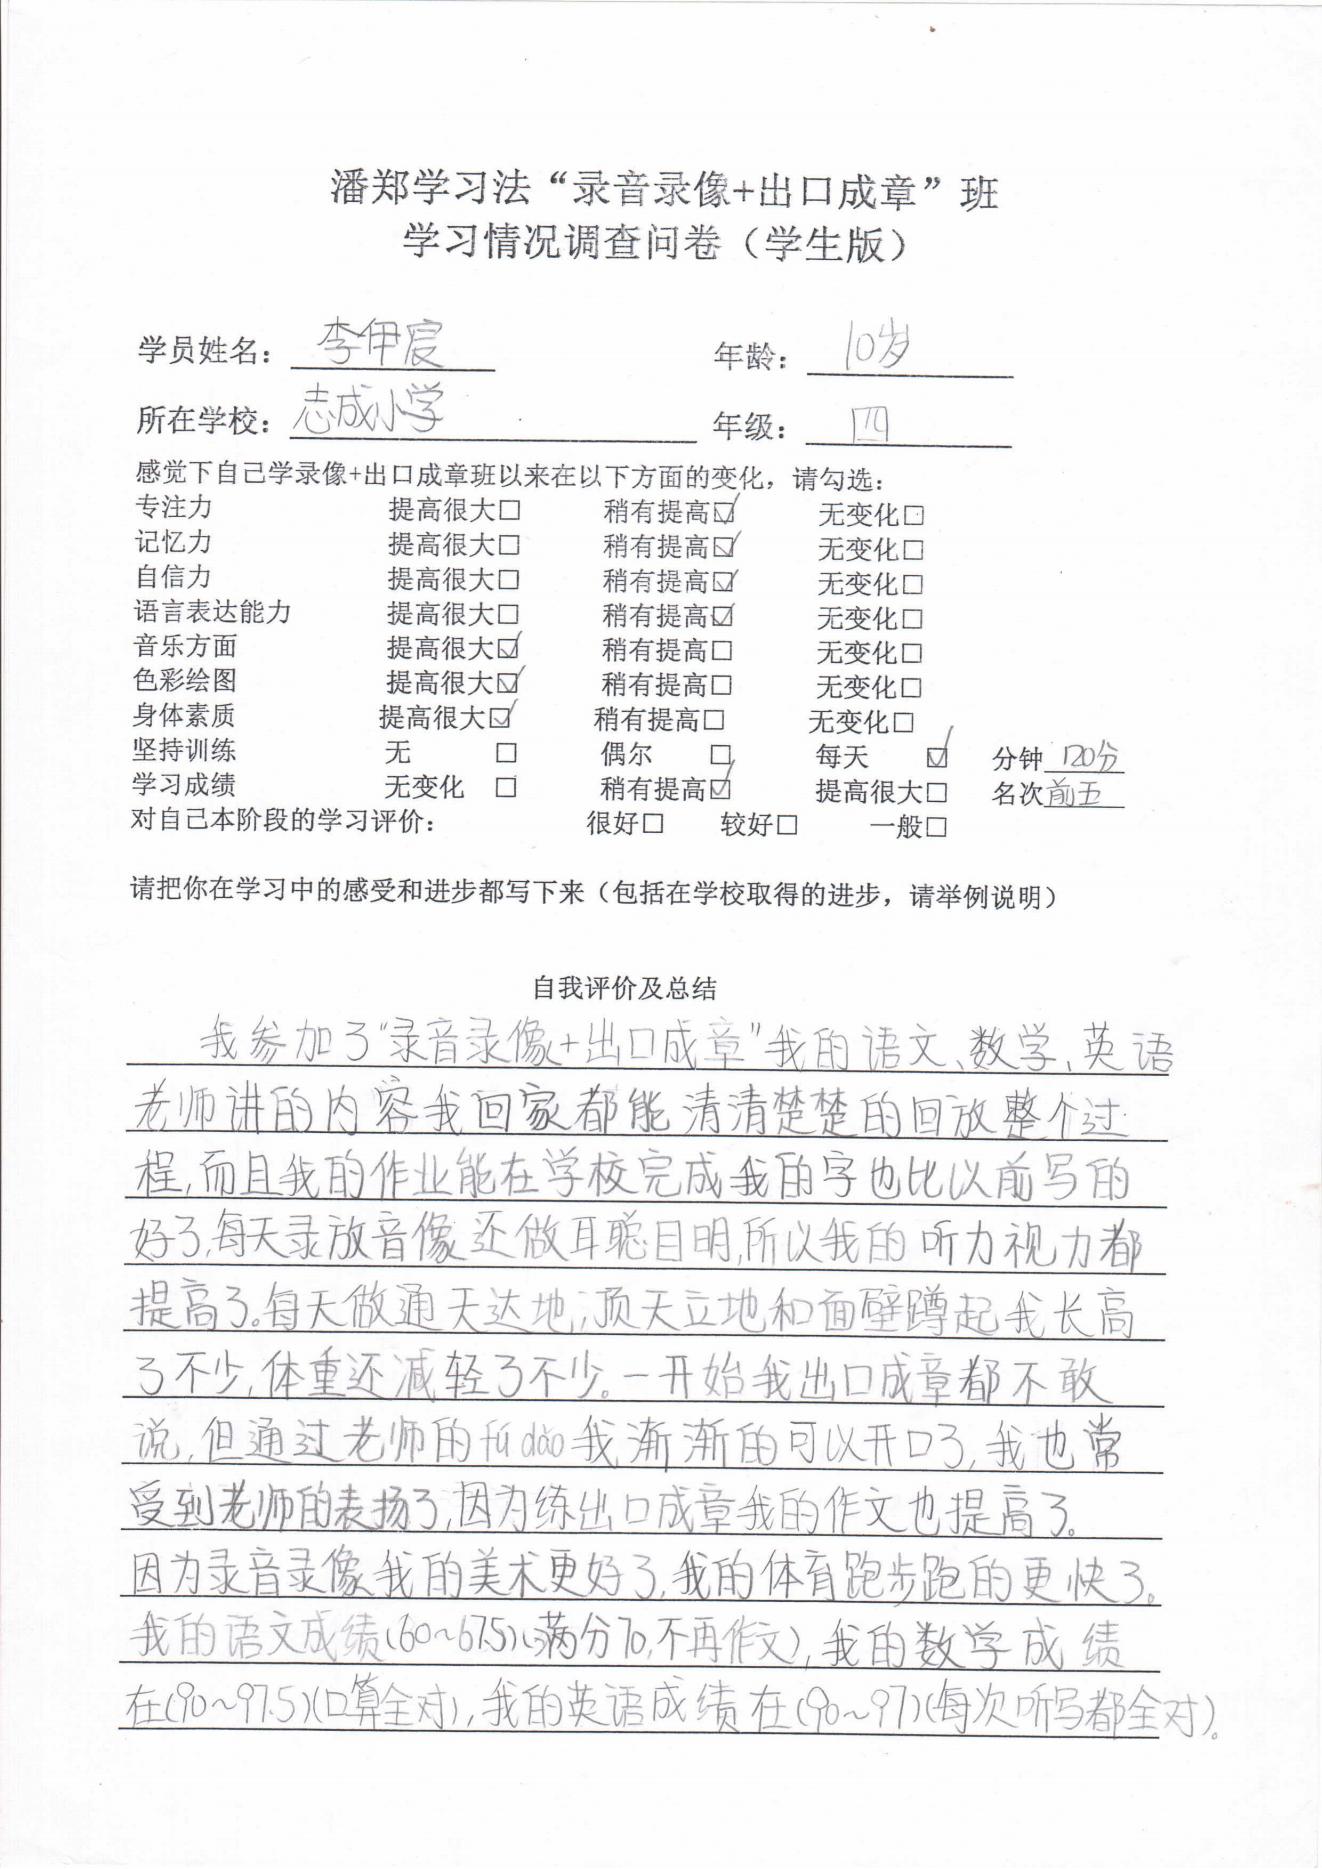 潘郑学习法“录音录像+出口成章”班
学习情况调查问卷（学生版）
学员姓名：李伊宸 年龄：10岁
所在学校：志成小学 年级：四
感觉下自己学录像+出口成章班以来在以下方面的变化，请勾选：
专注力 提高很大□ 稍有提高☑ 无变化□
记忆力 提高很大□ 稍有提高☑ 无变化□
自信力 提高很大□ 稍有提高☑ 无变化□
语言表达能力 提高很大□ 稍有提高☑ 无变化□
音乐方面 提高很大☑ 稍有提高□ 无变化□
色彩绘图 提高很大☑ 稍有提高□ 无变化□
身体素质 提高很大☑ 稍有提高□ 无变化□
坚持训练 无 □ 偶尔 □ 每天 ☑ 分钟 120分
学习成绩 无变化 □ 稍有提高☑ 提高很大□ 名次前五
对自己本阶段的学习评价： 很好□ 较好□ 一般□
请把你在学习中的感受和进步都写下来（包括在学校取得的进步，请举例说明）
自我评价及总结
我参加了“录音录像+出口成章”我的语文、数学、英语
老师讲的内容我回家都能清清楚楚的回放整个过
程,而且我的作业能在学校完成我的字也比以前写的
好了,每天录放音像还做耳聪目明,所以我的听力视力都
提高了。每天做通天达地,顶天立地和面壁蹲起我长高
了不少,体重还减轻了不少。一开始我出口成章都不敢
说,但通过老师的fǔ dǎo我渐渐的可以开口了,我也常
受到老师的表扬了,因为练出口成章我的作文也提高了。
因为录音录像我的美术更好了,我的体育跑步跑的更快了。
我的语文成绩(60~67.5)(满分70,不再作文),我的数学成绩
在(90~97.5)(口算全对),我的英语成绩在(90~97)(每次听写都全对)。